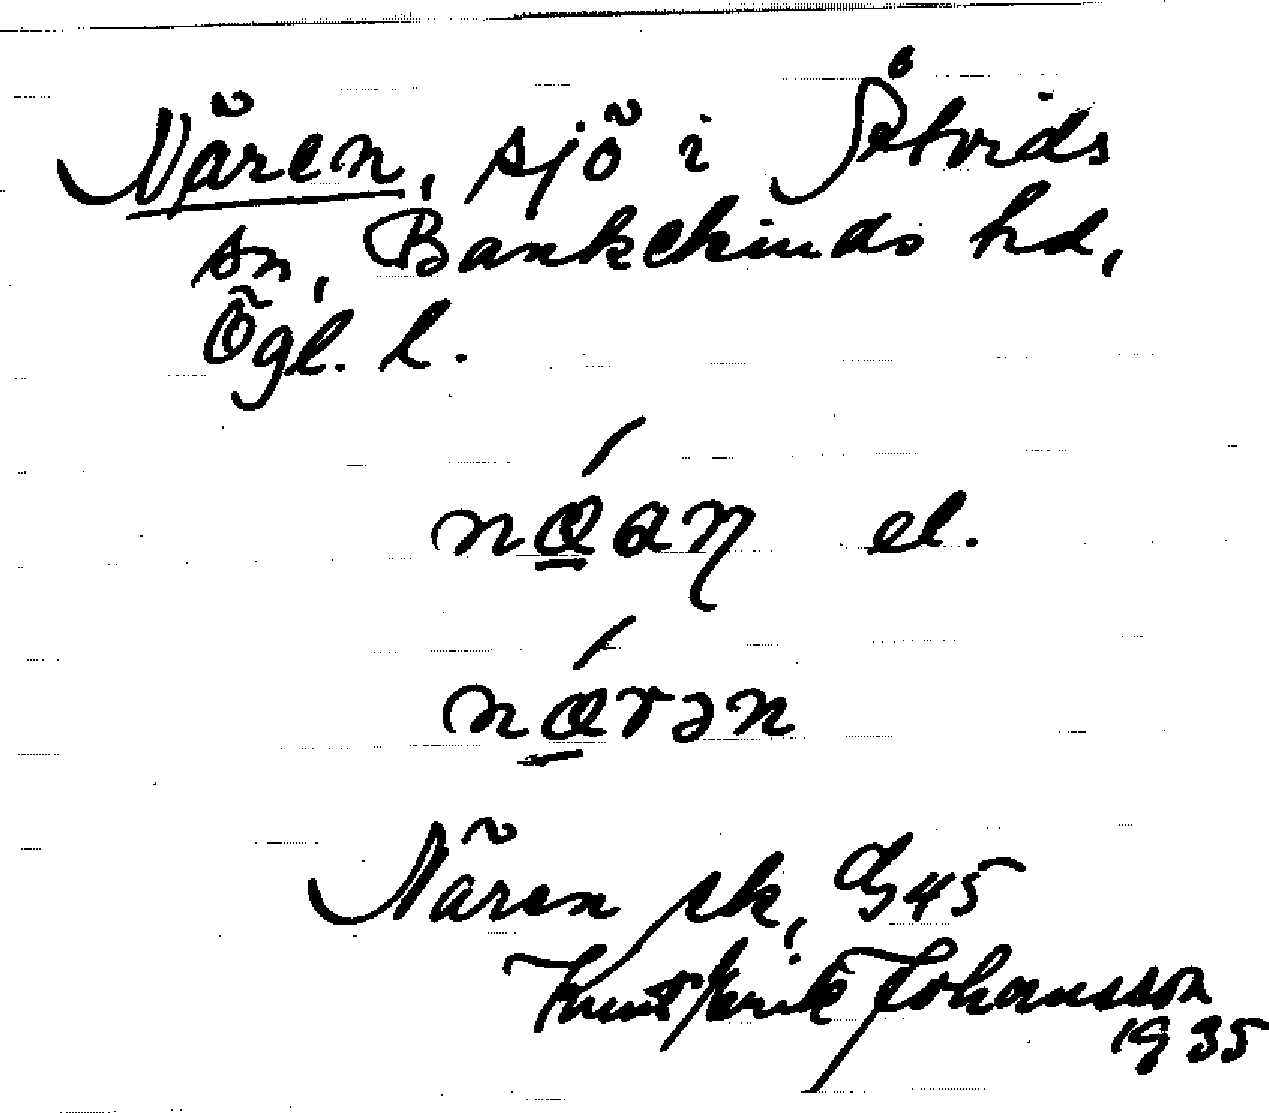 Nären, sjö i Åtvids
sn, Bankekinds hd,
Ögl. l.
nǽ̲aŋ el.
nǽ̲rən
Nären sk, G45
Knut Erik Johansson
1935